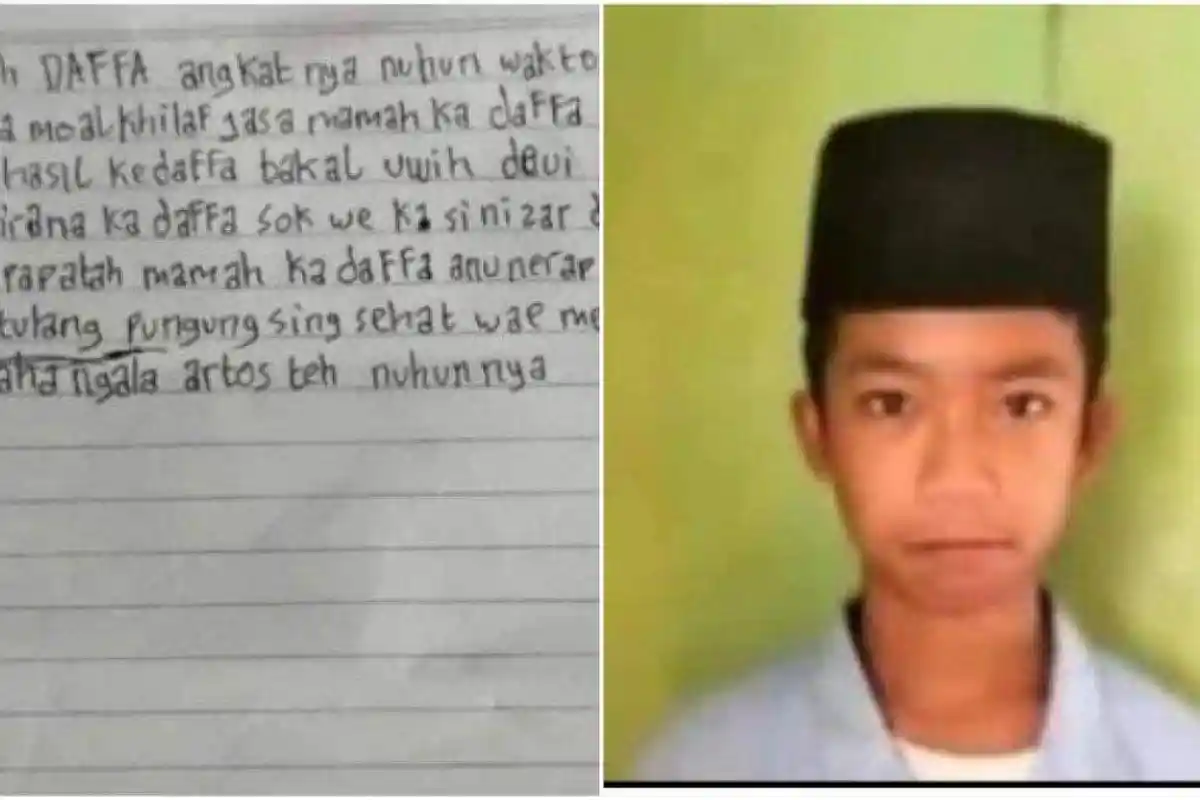 h DAFFA angkat nya nuhun wakto
a moal khilaf jasa mamah ka daffa
hasil ke daffa bakal uwih deui
irana ka daffa sok we ka si nizar
rapatah mamah ka daffa anu nerap
tulang pungung sing sehat wae me
aha ngala artos teh nuhun nya